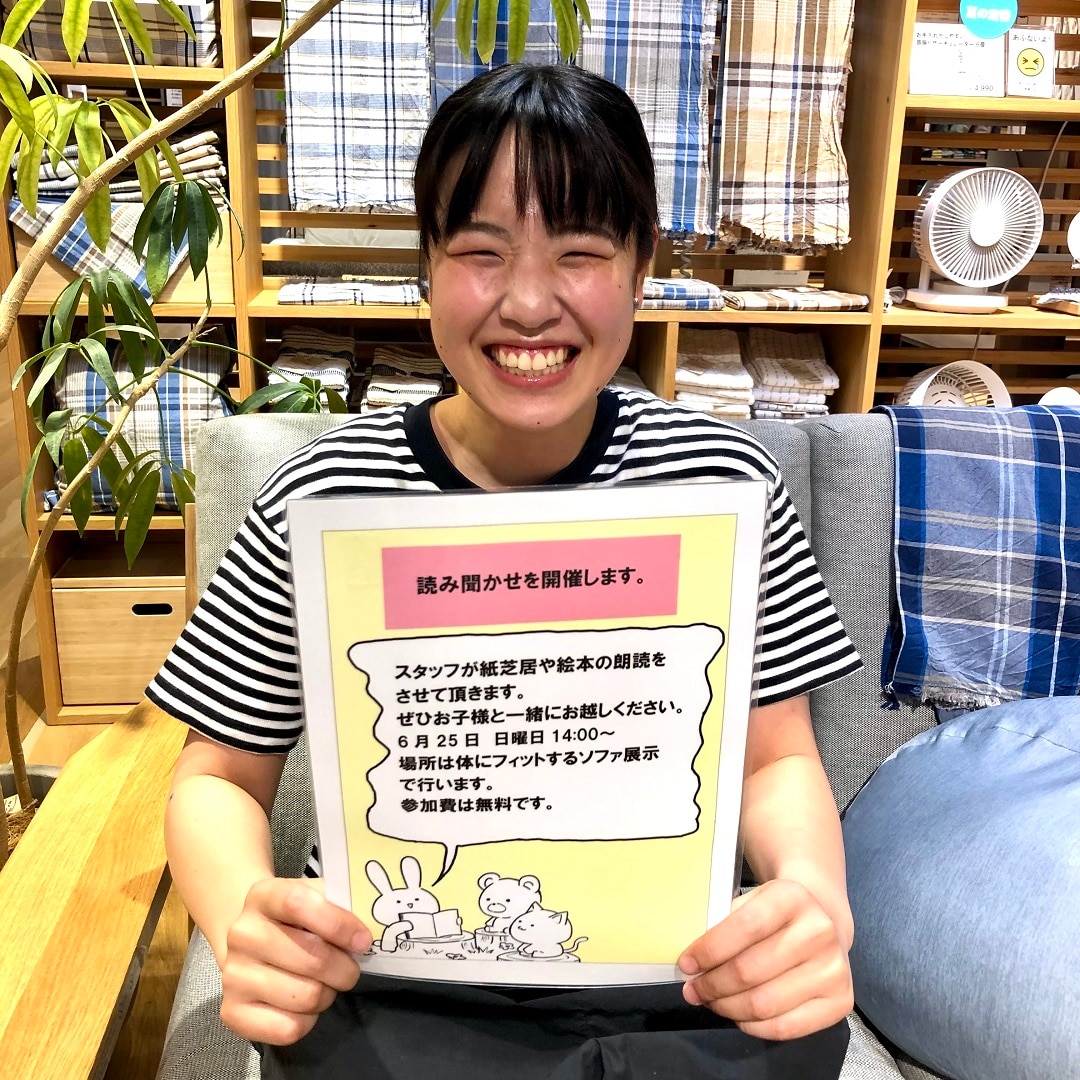 読み聞かせを開催します。
スタッフが紙芝居や絵本の朗読を
させて頂きます。
ぜひお子様と一緒にお越しください。
6月25日 日曜日 14:00〜
場所は体にフィットするソファ展示
で行います。
参加費は無料です。
あぶないよ!